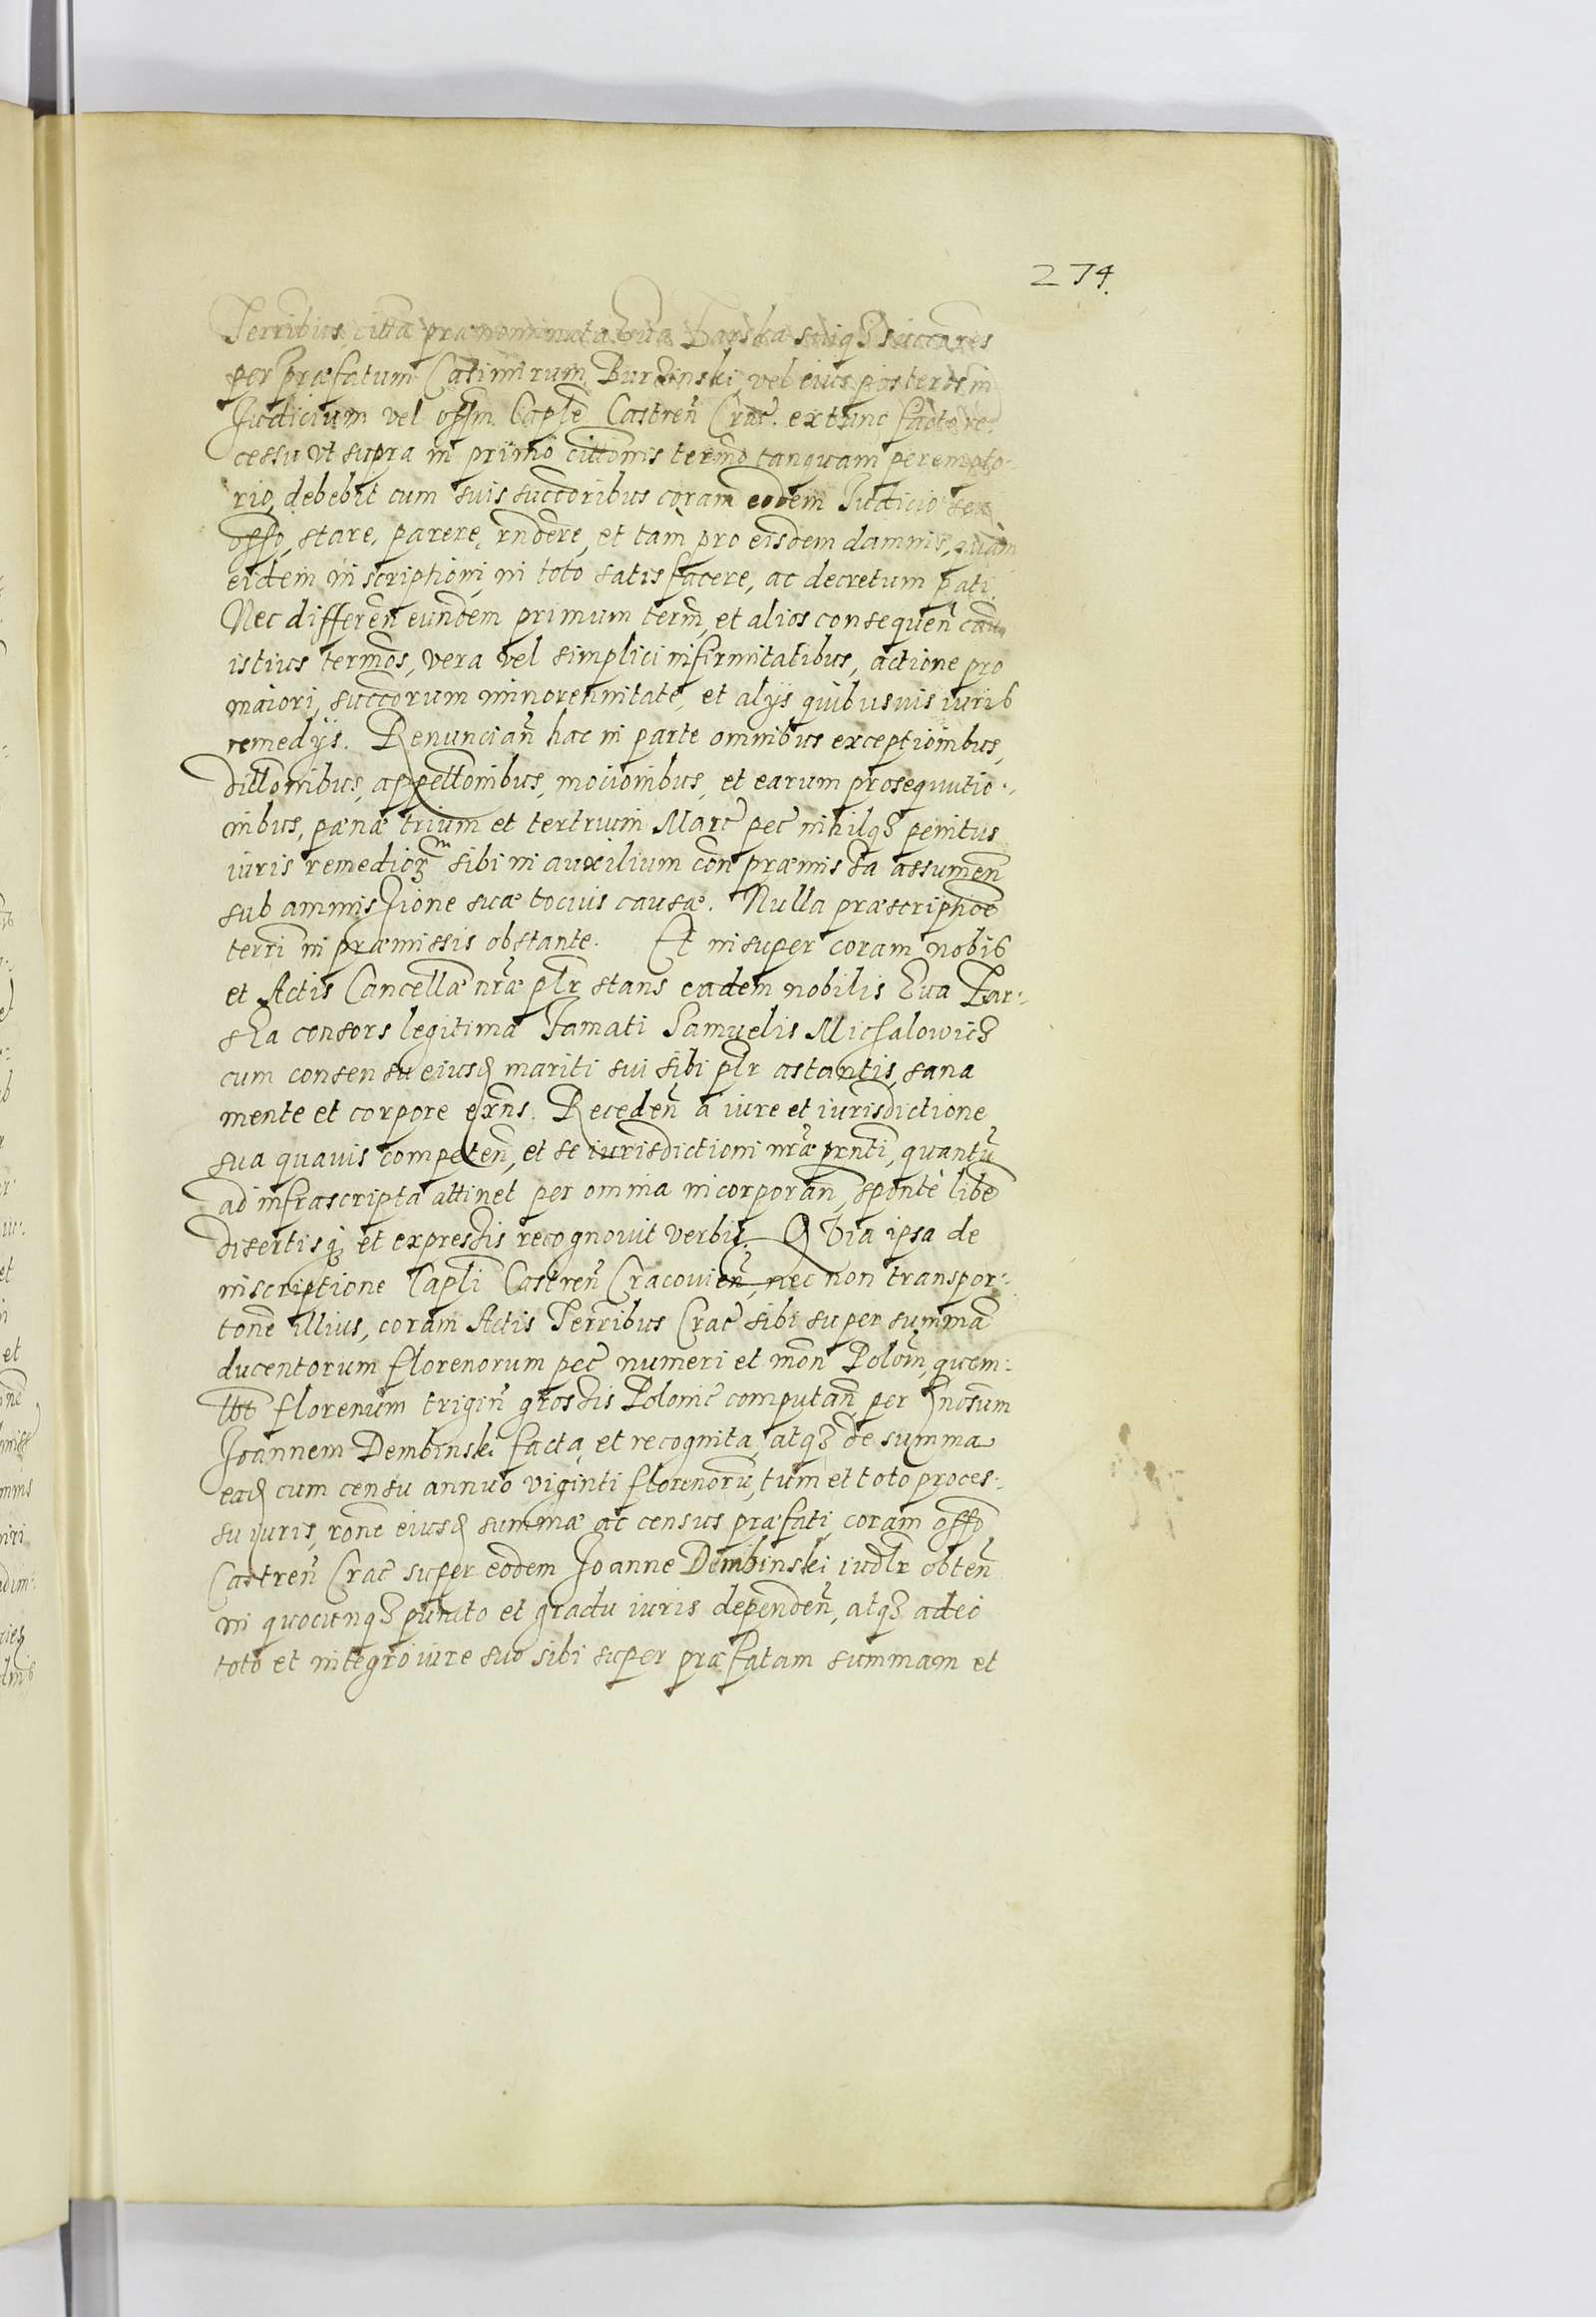 274.
Terribus, citta prænominata Eua Barska suiq3 succores
per præfatum Casimirum Burzinski, vel eius posteros in
Judicium vel offm Caple Castren Crac. extunc facto re:
cessu vt supra in primo cittonis termo tanquam perempto:
rio, debebit cum suis succoribus coram eodem Judicio seu
offo, stare, parere, rndere, et tam pro eisdem damnis, quàm
eidem inscriptioni in toto satisfacere, ac decretum pati.
Nec differen eundem primum term, et alios consequen
istius termos, vera vel simplici infirmitatibus, actione pro
maiori, succorum minorennitate, et alijs quibusuis iuris
remedijs. Renuncian hac in parte omnibus exceptioinbus,
dillonibus, appellonibus, mocioinbus, et earum prosequutio:
inbus, pænæ trium et tertrium Marc pec nihilq3 penitus
iuris remedior sibi in auxilium con præmissa assumen
sub ammissione suæ tocius causæ. Nulla præscriptioe
terri in præmissis obstante. Et insuper coram nobis
et Actis Cancellæ nræ plr stans eadem nobilis Eua Bar:
ska consors legitima Famati Samuelis Michalowic3
cum consensu eiusd mariti sui sibi plr astantis, sana
mente et corpore exns. Receden a iure et iurisdictione
sua quauis competen, et se iurisdictioni nræ prnti, quantu
ad infrascripta attinet per omnia incorporan, sponte libe
disertisq et expressis recognouit verbis. QVia ipsa de
inscriptione Capli Castren Cracouien, nec non transpor:
tone illius, coram Actis Terribus Crac sibi super summa
ducentorum florenorum pec numeri et mon Polon, quem:
lbt florenum trigin grossis Polonic computan, per Gnosum
Joannem Dembinski facta, et recognita, atq3 de summa
ead cum censu annuo viginti florenoru, tum et toto proces:
su iuris, rone eiusd summæ ac census præfati, coram offo
Castren Crac super eodem Joanne Dembinski iudlr obten
in quocunq3 puncto et gradu iuris dependen, atq3 adeo
toto et integro iure suo sibi super præfatam summam et